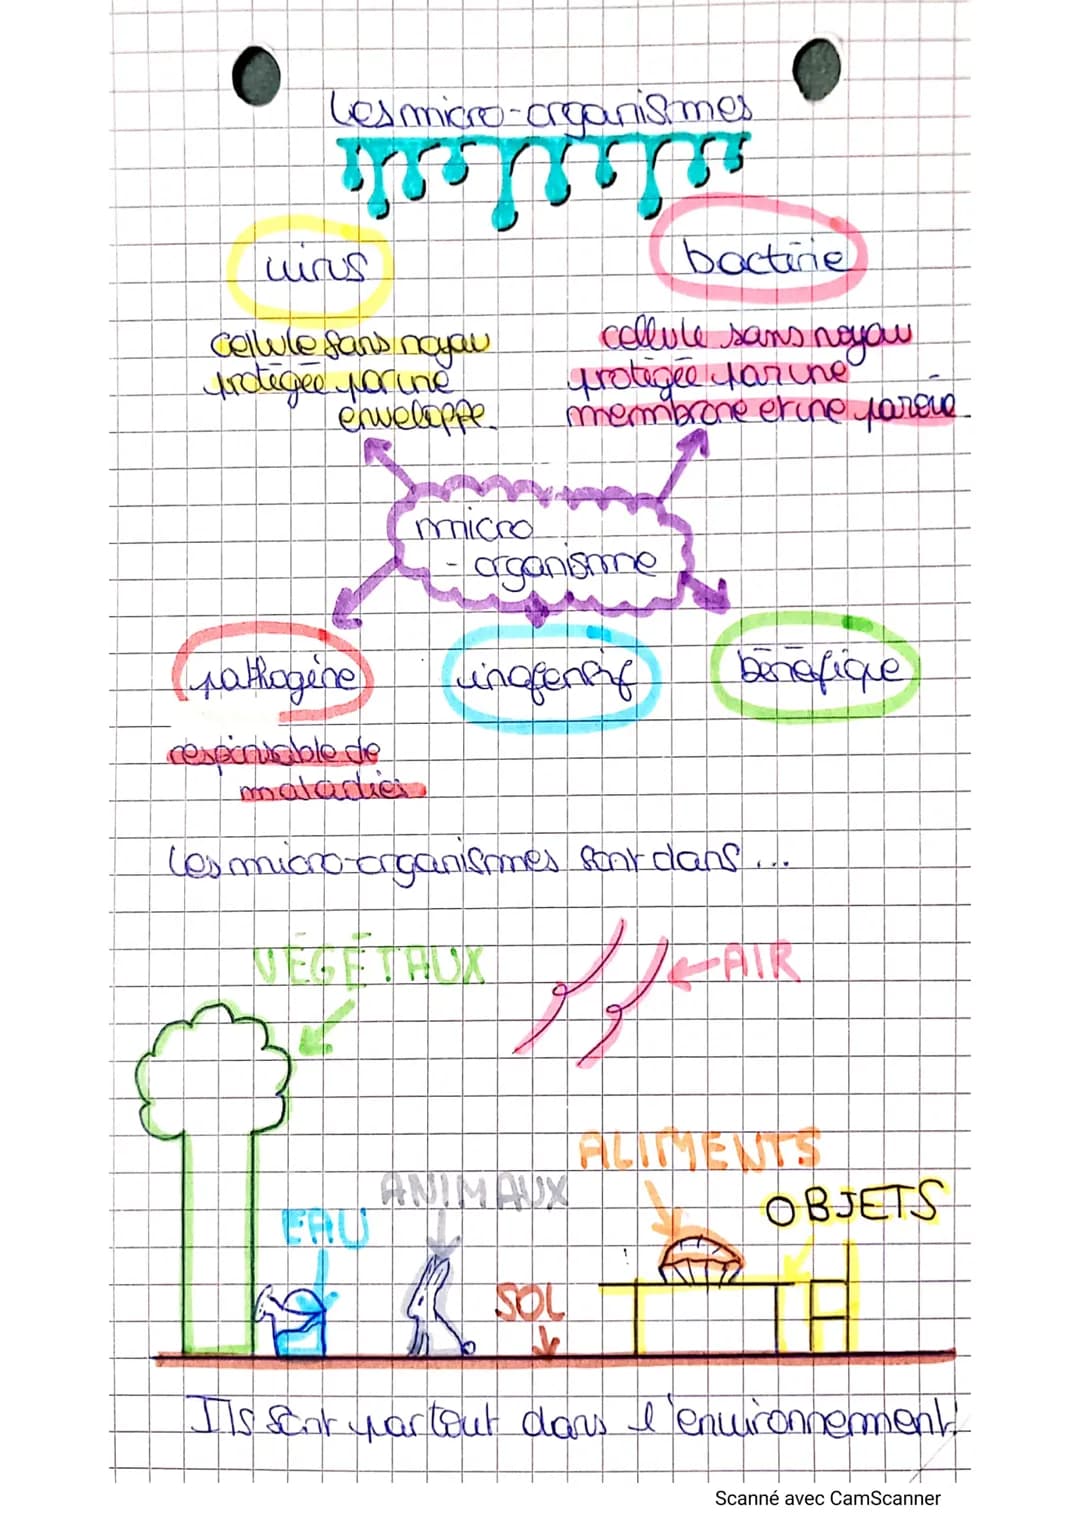 Les micro-organismes
virus
bactérie
cellule sans noyau
protégée par une
enveloppe.
cellule sans noyau
protégée par une
membrane et une paroie
micro
- organisme
pathogène
inofensif
bénéfique
responsable de
maladies
Les micro-organismes sont dans ...
VÉGÉTAUX
AIR
ALIMENTS
ANIMAUX
OBJETS
EAU
SOL
Ils sont partout dans l'environnement!
Scanné avec CamScanner